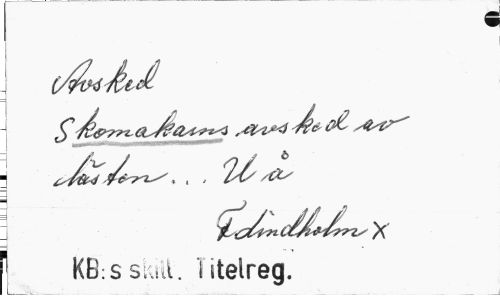 Avsked
Skomakarns avsked av
lästen... U å
F Lindholm x
KB:s skill. Titelreg.